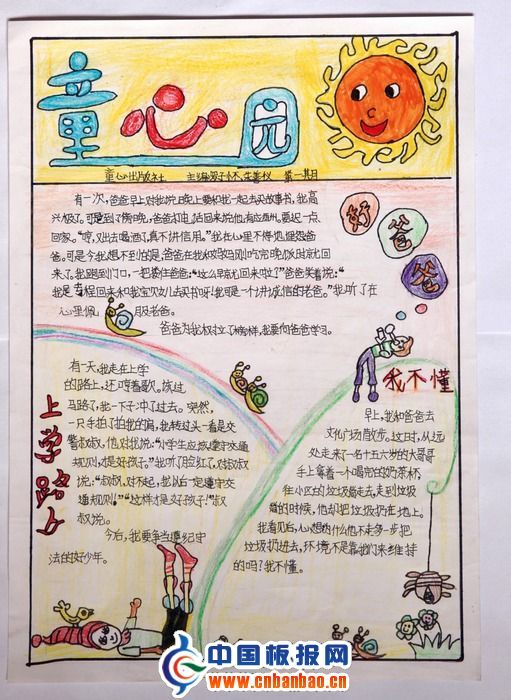 童心园
童心出版社 主编 第一期
好爸爸
有一次，爸爸早上对我说晚上要和我一起去买故事书，我高
兴极了。可是到了傍晚，爸爸打电话回来说他有应酬，要迟一点
回家。“哼，又出去喝酒了，真不讲信用。”我在心里不停地埋怨爸
爸。可是令我想不到的是，爸爸在我和妈妈刚吃完晚饭时就回
来了。我跑到门口，一把搂住爸爸：“这么早就回来啦？”爸爸笑着说：“
我是专程回来和我宝贝女儿去买书呀！我可是一个讲诚信的老爸。”我听了在
心里佩服老爸。
爸爸为我树立了榜样，我要向爸爸学习。
上学路上
有一天，我走在上学
的路上，还哼着歌。该过
马路了，我一下子冲了过去。突然，
一只手拍了拍我的肩，我转过头一看是交
警叔叔，他对我说：“小学生应该遵守交通
规则，才是好孩子。”我听了脸红了，对叔叔
说：“叔叔，对不起，我以后一定遵守交
通规则！”“这样才是好孩子！”叔
叔说。
今后，我要争当遵纪守
法的好少年。
我不懂
早上，我和爸爸去
文化广场散步。这时，从远
处走来了一名十五六岁的大哥哥
手上拿着一个喝完的奶茶杯，
往小区的垃圾箱走去，走到垃圾
箱的时候，他却把垃圾扔在地上。
我看见后，心想为什么他不走多一步把
垃圾扔进去，环境不是靠我们来维持
的吗？我不懂。
中国板报网
www.cnbanbao.cn